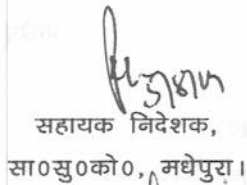 सहायक निदेशक,
सा०सु०को०, मधेपुरा।